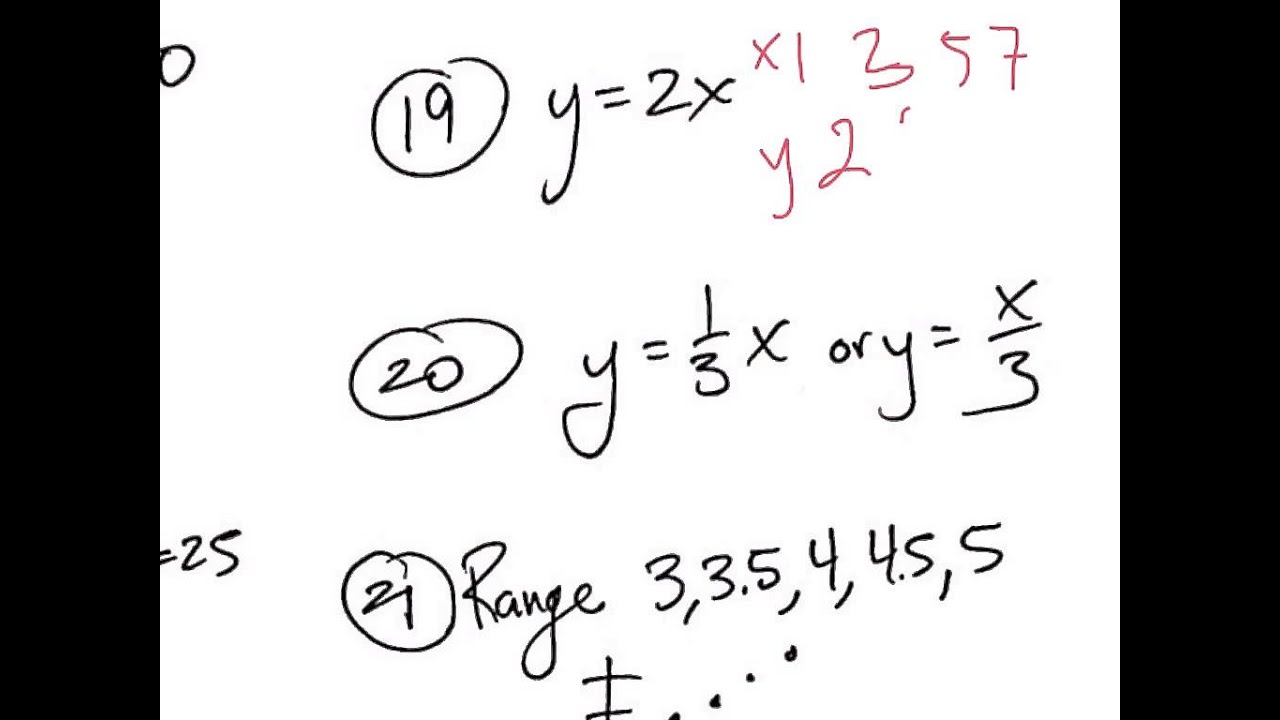 0
19 y=2x x 1 3 5 7
y 2
20 y = 1/3 x or y = x/3
=25
21 Range 3, 3.5, 4, 4.5, 5